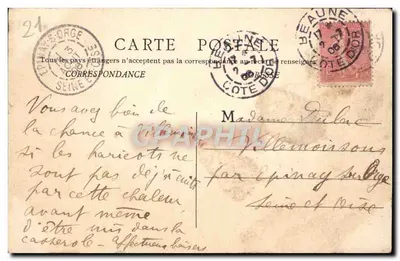 21
CARTE POSTALE
Tous les pays étrangers n'acceptent pas la correspondance
CORRESPONDANCE
EPINAY-S-ORGE
SEINE
BEAUNE
COTE D'OR
BEAUNE
COTE D'OR
Vous avez bien de
la chance à
si les haricots ne
sont pas déjà cuits
par cette chaleur
avant même
d'être mis dans la
casserole - affectueux baisers
M
Madame Dulac
Villemoissons
par Epinay sur Orge
Seine et Oise